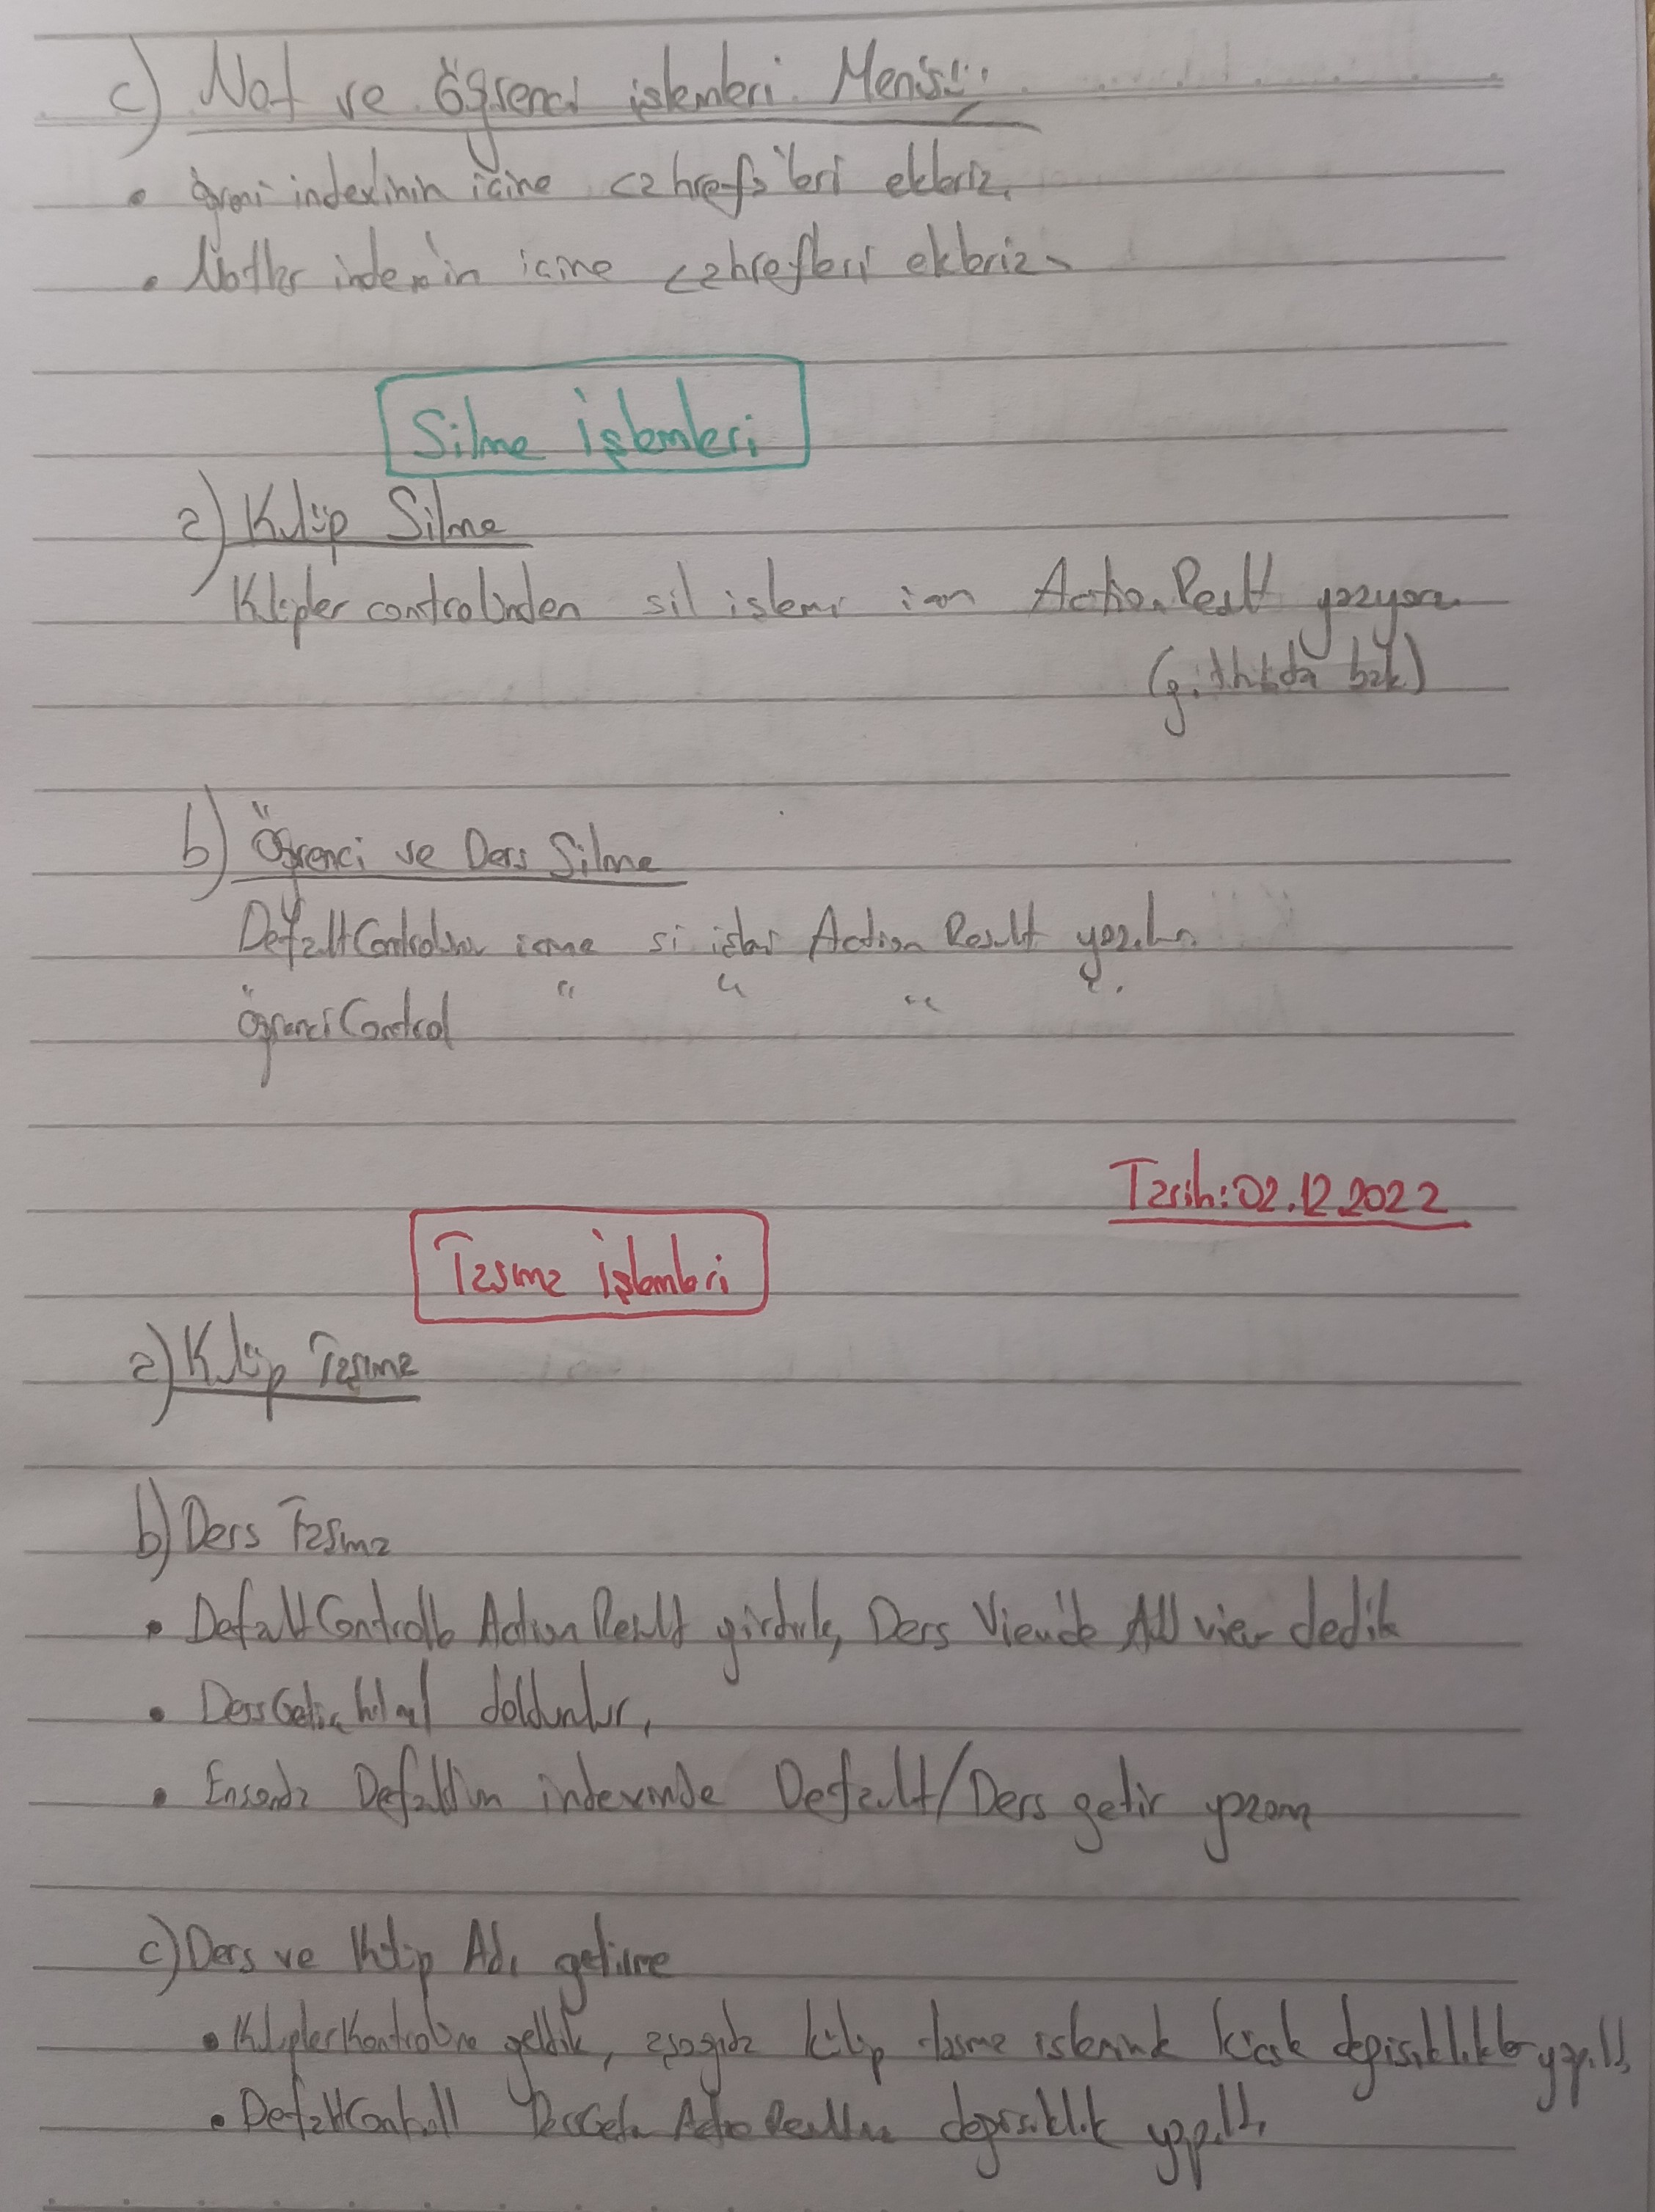 c) Not ve Öğrenci işlemleri Menüsü
• Öğrenci indexinin içine <a href>'leri ekleriz.
• Notlar index'in içine <a hrefleri ekleriz
Silme İşlemleri
a) Klüp Silme
Klüpler controlünden sil islemi icin ActionResult yazıyoruz
(githubda bak)
b) Öğrenci ve Ders Silme
DefaultControlünün icine sil Action Result yazılır.
ÖğrenciControl " " " "
Tarih: 02.12.2022
Taşıma İşlemleri
a) Klüp Taşıma
b) Ders Tasıma
• DefaultControlle ActionResult girdirdik, Ders View'de All view dedik
• DersGetir html doldurulur.
• Ensonda Default'un indexinde Default/Ders getir yazarız
c) Ders ve Klüp Adı getirme
• KlüplerKontrolüne geldik, aşagıda külüp tasıma isleminde Kücük degisiklikler yapıldı
• DefaultControll DersGetir ActionResultına degisiklik yapıldı.